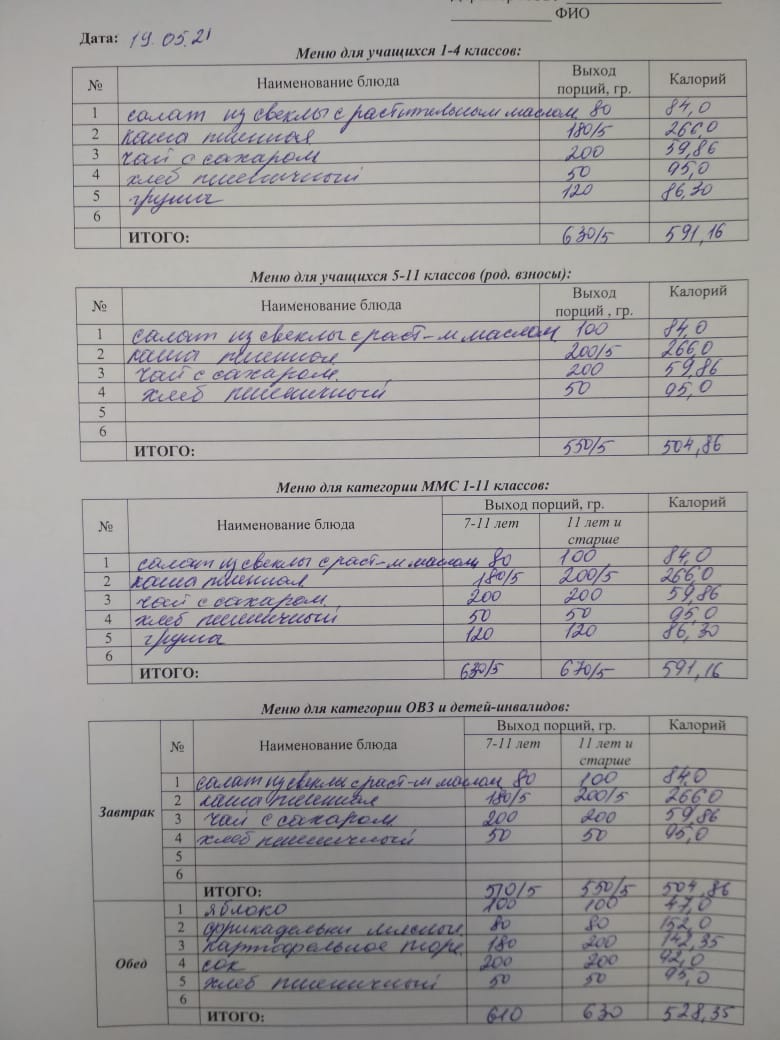 ФИО
Дата: 19.05.21
Меню для учащихся 1-4 классов:
№ Наименование блюда Выход порций, гр. Калорий
1 салат из свеклы с растительным маслом 80 84,0
2 каша пшенная 180/5 266,0
3 чай с сахаром 200 59,86
4 хлеб пшеничный 50 95,0
5 груша 120 86,30
6
ИТОГО: 630/5 591,16
Меню для учащихся 5-11 классов (род. взносы):
№ Наименование блюда Выход порций , гр. Калорий
1 салат из свеклы с раст-м маслом 100 84,0
2 каша пшенная 200/5 266,0
3 чай с сахаром. 200 59,86
4 хлеб пшеничный 50 95,0
5
6
ИТОГО: 550/5 504,86
Меню для категории ММС 1-11 классов:
№ Наименование блюда Выход порций, гр. Калорий
7-11 лет 11 лет и старше
1 салат из свеклы с раст-м маслом 80 100 84,0
2 каша пшенная 180/5 200/5 266,0
3 чай с сахаром. 200 200 59,86
4 хлеб пшеничный 50 50 95,0
5 груша 120 120 86,30
6
ИТОГО: 630/5 670/5 591,16
Меню для категории ОВЗ и детей-инвалидов:
№ Наименование блюда Выход порций, гр. Калорий
7-11 лет 11 лет и старше
Завтрак
1 салат из свеклы с раст-м маслом 80 100 84,0
2 каша пшенная 180/5 200/5 266,0
3 чай с сахаром 200 200 59,86
4 хлеб пшеничный 50 50 95,0
5
6
ИТОГО: 510/5 550/5 504,86
Обед
1 яблоко 100 100 47,0
2 фрикадельки мясные 80 80 152,0
3 картофельное пюре. 180 200 142,35
4 сок 200 200 92,0
5 хлеб пшеничный 50 50 95,0
6
ИТОГО: 610 630 528,35